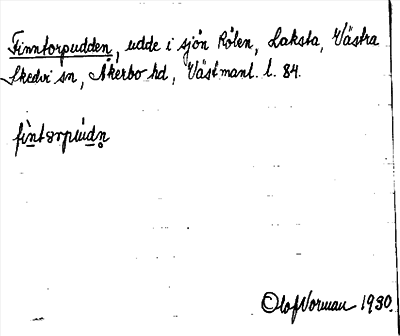 Finntorpudden, udde i sjön Rölen, Laksta, Västra
Skedvi sn, Åkerbo hd, Västmanl. l. 84.
fìntorpúdn̥
Olof Norman 1930.